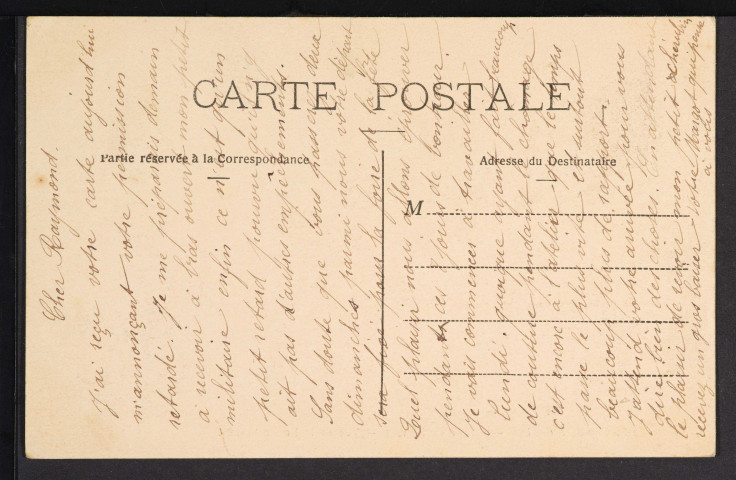 CARTE POSTALE
Partie réservée à la Correspondance
Adresse du Destinataire
M
Cher Raymond.
j'ai reçu votre carte aujourd'hui
m'annonçant votre permission
retardé. Je me préparais demain
à recevoir à bras ouvert mon petit
militaire enfin ce n'est qu'un
petit retard pourvu qu'il n'y
ait pas d'autres empêchements.
Sans doute que vous passerez deux
dimanches parmi nous votre départ
sera fixé pour la foire de la fête
Quel plaisir nous allons éprouver
pendant ces jours de bonheur.
Je vais commencer à travailler
lundi. quoique ayant fait beaucoup
de couture pendant le chomage
c'est encore à l'atelier que le temps
passe le plus vite et surtout
beaucoup plus de rapport.
J'attend votre arrivée pour vous
dire bien des choses. En attendant
le plaisir de revoir mon petit chéri
recevez un gros baiser votre Margot qui pense
à vous